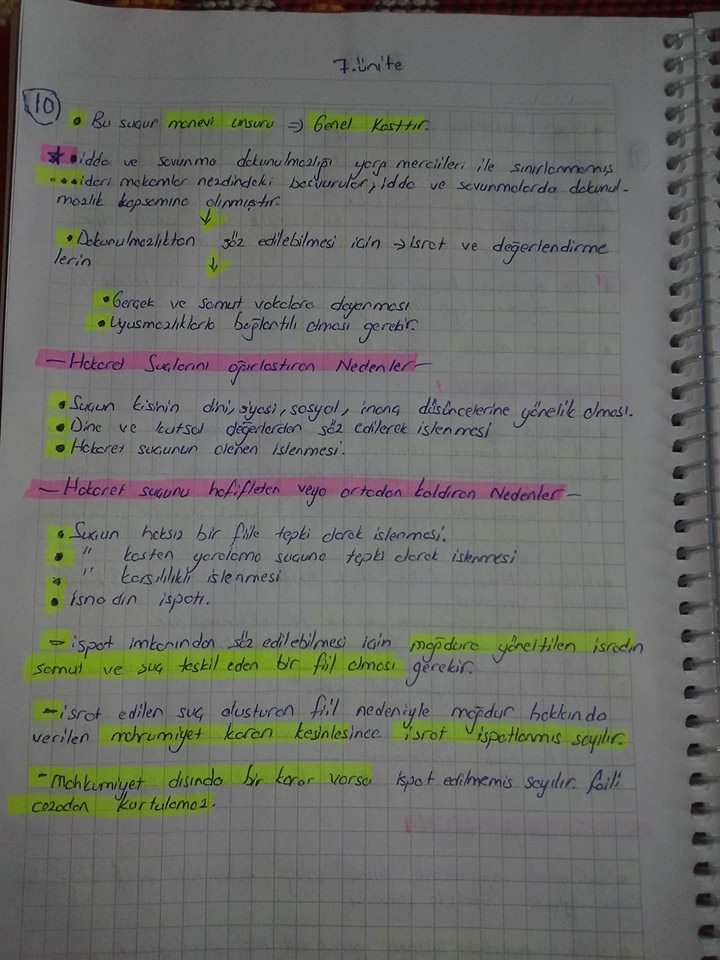 7.ünite
10
• Bu suçun manevi unsuru => Genel Kasttır.
★ • iddia ve savunma dokunulmazlığı yargı mercileri ile sınırlanmamış
... idari makamlar nezdindeki başvurular, iddia ve savunmalarda dokunul-
mazlık kapsamına alınmıştır.
↓
• Dokunulmazlıktan söz edilebilmesi için → isnat ve değerlendirme
lerin ↓
• Gerçek ve somut vakalara dayanması
• Uyuşmazlıklarla bağlantılı olması gerekir.
— Hakaret Suçlarını ağırlaştıran Nedenler —
• Suçun kişinin dini, siyasi, sosyal, inanç düşüncelerine yönelik olması.
• Dine ve kutsal değerlerden söz edilerek işlenmesi
• Hakaret suçunun alenen işlenmesi.
— Hakaret suçunu hafifleten veya ortadan kaldıran Nedenler —
• Suçun haksız bir fiile tepki olarak işlenmesi.
• " kasten yaralama suçuna tepki olarak işlenmesi
• " karşılıklı işlenmesi
• isnadın ispatı.
- ispat imkanından söz edilebilmesi için mağdura yöneltilen isnadın
somut ve suç teşkil eden bir fiil olması gerekir.
- isnat edilen suç oluşturan fiil nedeniyle mağdur hakkında
verilen mahrumiyet kararı kesinleşince isnat ispatlanmış sayılır.
- Mahkumiyet dışında bir karar varsa ispat edilmemiş sayılır. faili
cezadan kurtulamaz.